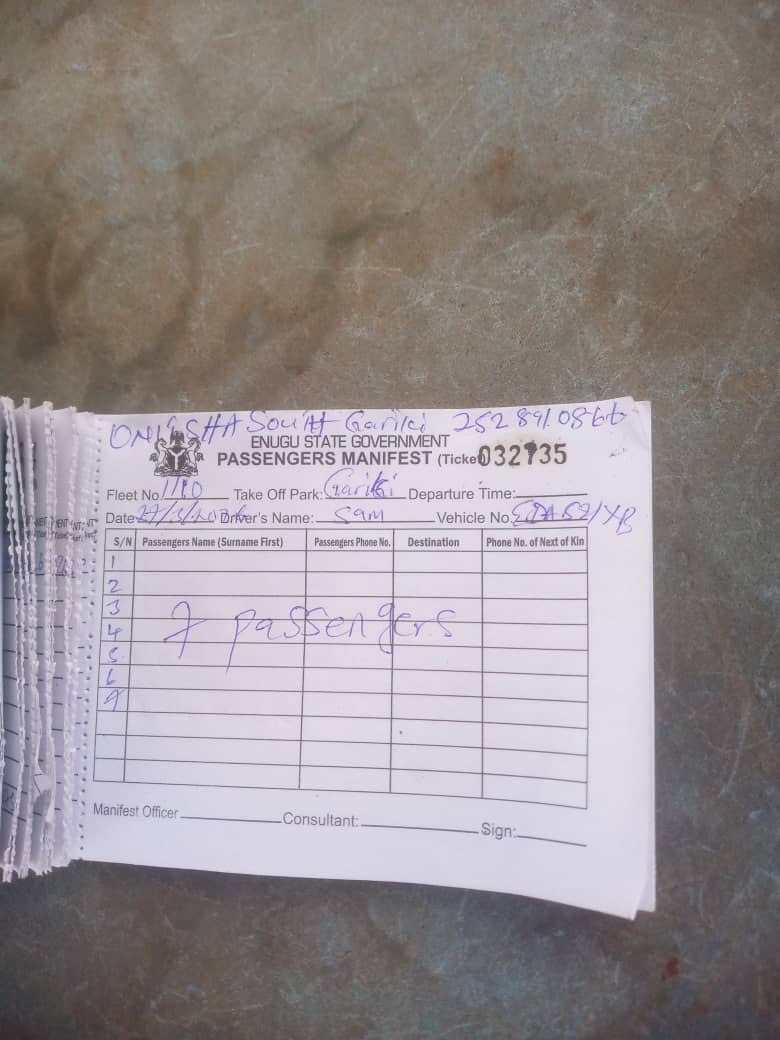 ONITSHA South Gariki 2528910866
ENUGU STATE GOVERNMENT
PASSENGERS MANIFEST (Ticket 032735
Fleet No. 1110 Take Off Park: Gariki Departure Time:
Date 27/3/2026 Driver's Name: Sam Vehicle No.
S/N Passengers Name (Surname First) Passengers Phone No. Destination Phone No. of Next of Kin
1
2
3
7 passengers
4
5
6
7
Manifest Officer Consultant: Sign: